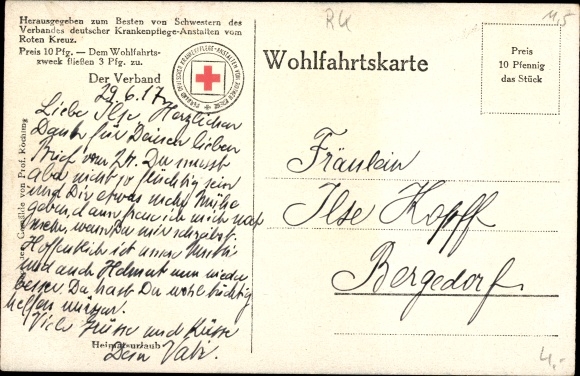 Herausgegeben zum Besten von Schwestern des
Verbandes deutscher Krankenpflege-Anstalten vom
Roten Kreuz.
Preis 10 Pfg. — Dem Wohlfahrts-
zweck fließen 3 Pfg. zu.
Der Verband
VERBAND DEUTSCHER KRANKENPFLEGE-ANSTALTEN VOM ROTEN KREUZ
RK
11,5
Wohlfahrtskarte
Preis
10 Pfennig
das Stück
29.6.17.
Liebe Ilse, Herzlichen
Dank für Deinen lieben
Brief vom 24. Du musst
aber nicht so flüchtig sein
und Dir etwas mehr Mühe
geben, dann freue ich mich noch
mehr, wenn Du mir schreibst.
Hoffentlich ist unsere Mutti
und auch Helmut nun wieder
besser. Da hast Du wohl tüchtig
helfen müssen.
Viele Grüsse und Küsse
Dein Vati.
Gemälde von Prof. Koch
Heimaturlaub
Fräulein
Ilse Kopff
Bergedorf
4,-